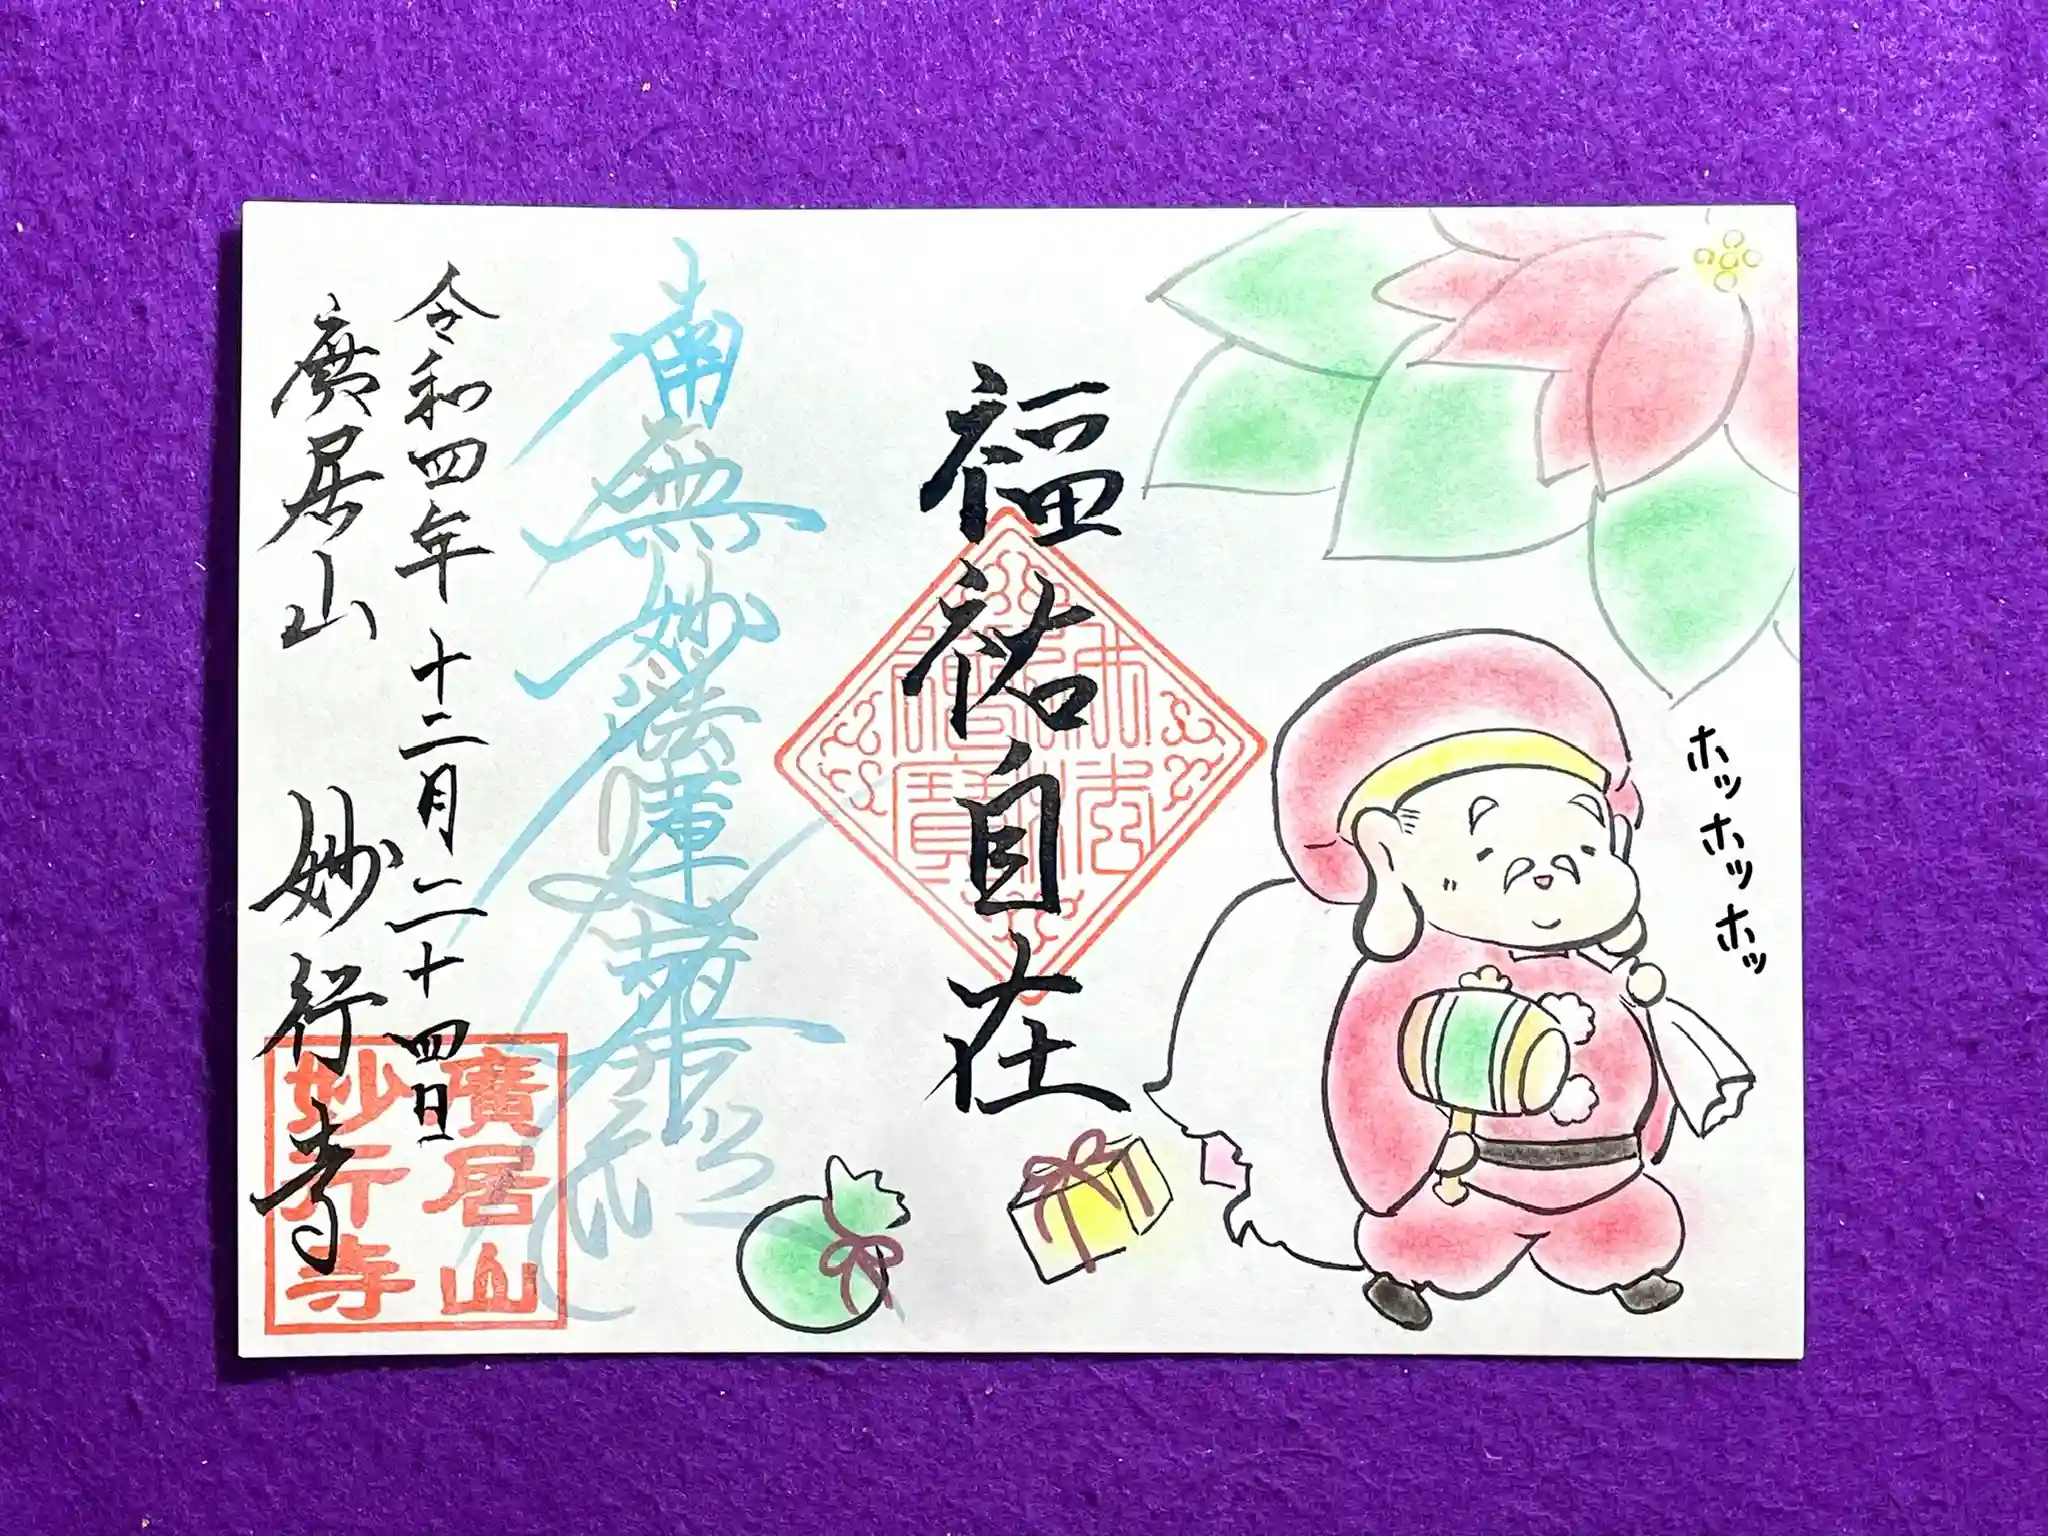 ホッホッホッホッ
福祐自在
南無妙法蓮華経
令和四年十二月二十四日
廣居山　妙行寺
廣居山
妙行寺